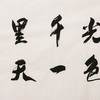 光千里
色一天